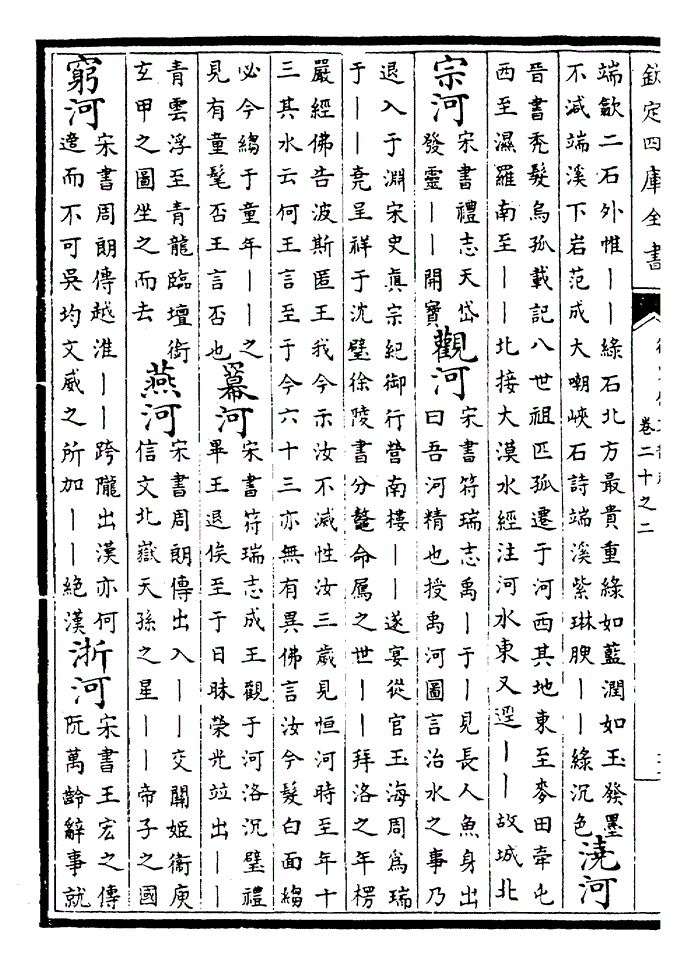 欽定四庫全書
卷二十之二
端歙二石外惟｜｜綠石北方最貴重綠如藍潤如玉發墨
不減端溪下岩范成大嘲峽石詩端溪紫琳腴｜｜綠沉色
澆河
晉書禿髮烏孤載記八世祖匹孤遷于河西其地東至麥田牽屯
西至濕羅南至｜｜北接大漠水經注河水東又逕｜｜故城北
宗河
宋書禮志天岱
發靈｜｜開寶
觀河
宋書符瑞志禹｜于｜見長人魚身出
曰吾河精也授禹河圖言治水之事乃
退入于淵宋史真宗紀御行營南樓｜｜遂宴從官玉海周爲瑞
于｜｜堯呈祥于沈璧徐陵書分鼇命厲之世｜｜拜洛之年楞
嚴經佛告波斯匿王我今示汝不滅性汝三歲見恒河時至年十
三其水云何王言至于今六十三亦無有異佛言汝今髮白面縐
必今縐于童年｜｜之
見有童髦否王言否也
冪河
宋書符瑞志成王觀于河洛沉璧禮
畢王退俟至于日昧榮光竝出｜｜
青雲浮至青龍臨壇銜
玄甲之圖坐之而去
燕河
宋書周朗傳出入｜｜交關姬衞庾
信文北嶽天孫之星｜｜帝子之國
窮河
宋書周朗傳越淮｜｜跨隴出漢亦何
遠而不可吳均文威之所加｜｜絕漢
浙河
宋書王宏之傳
阮萬齡辭事就